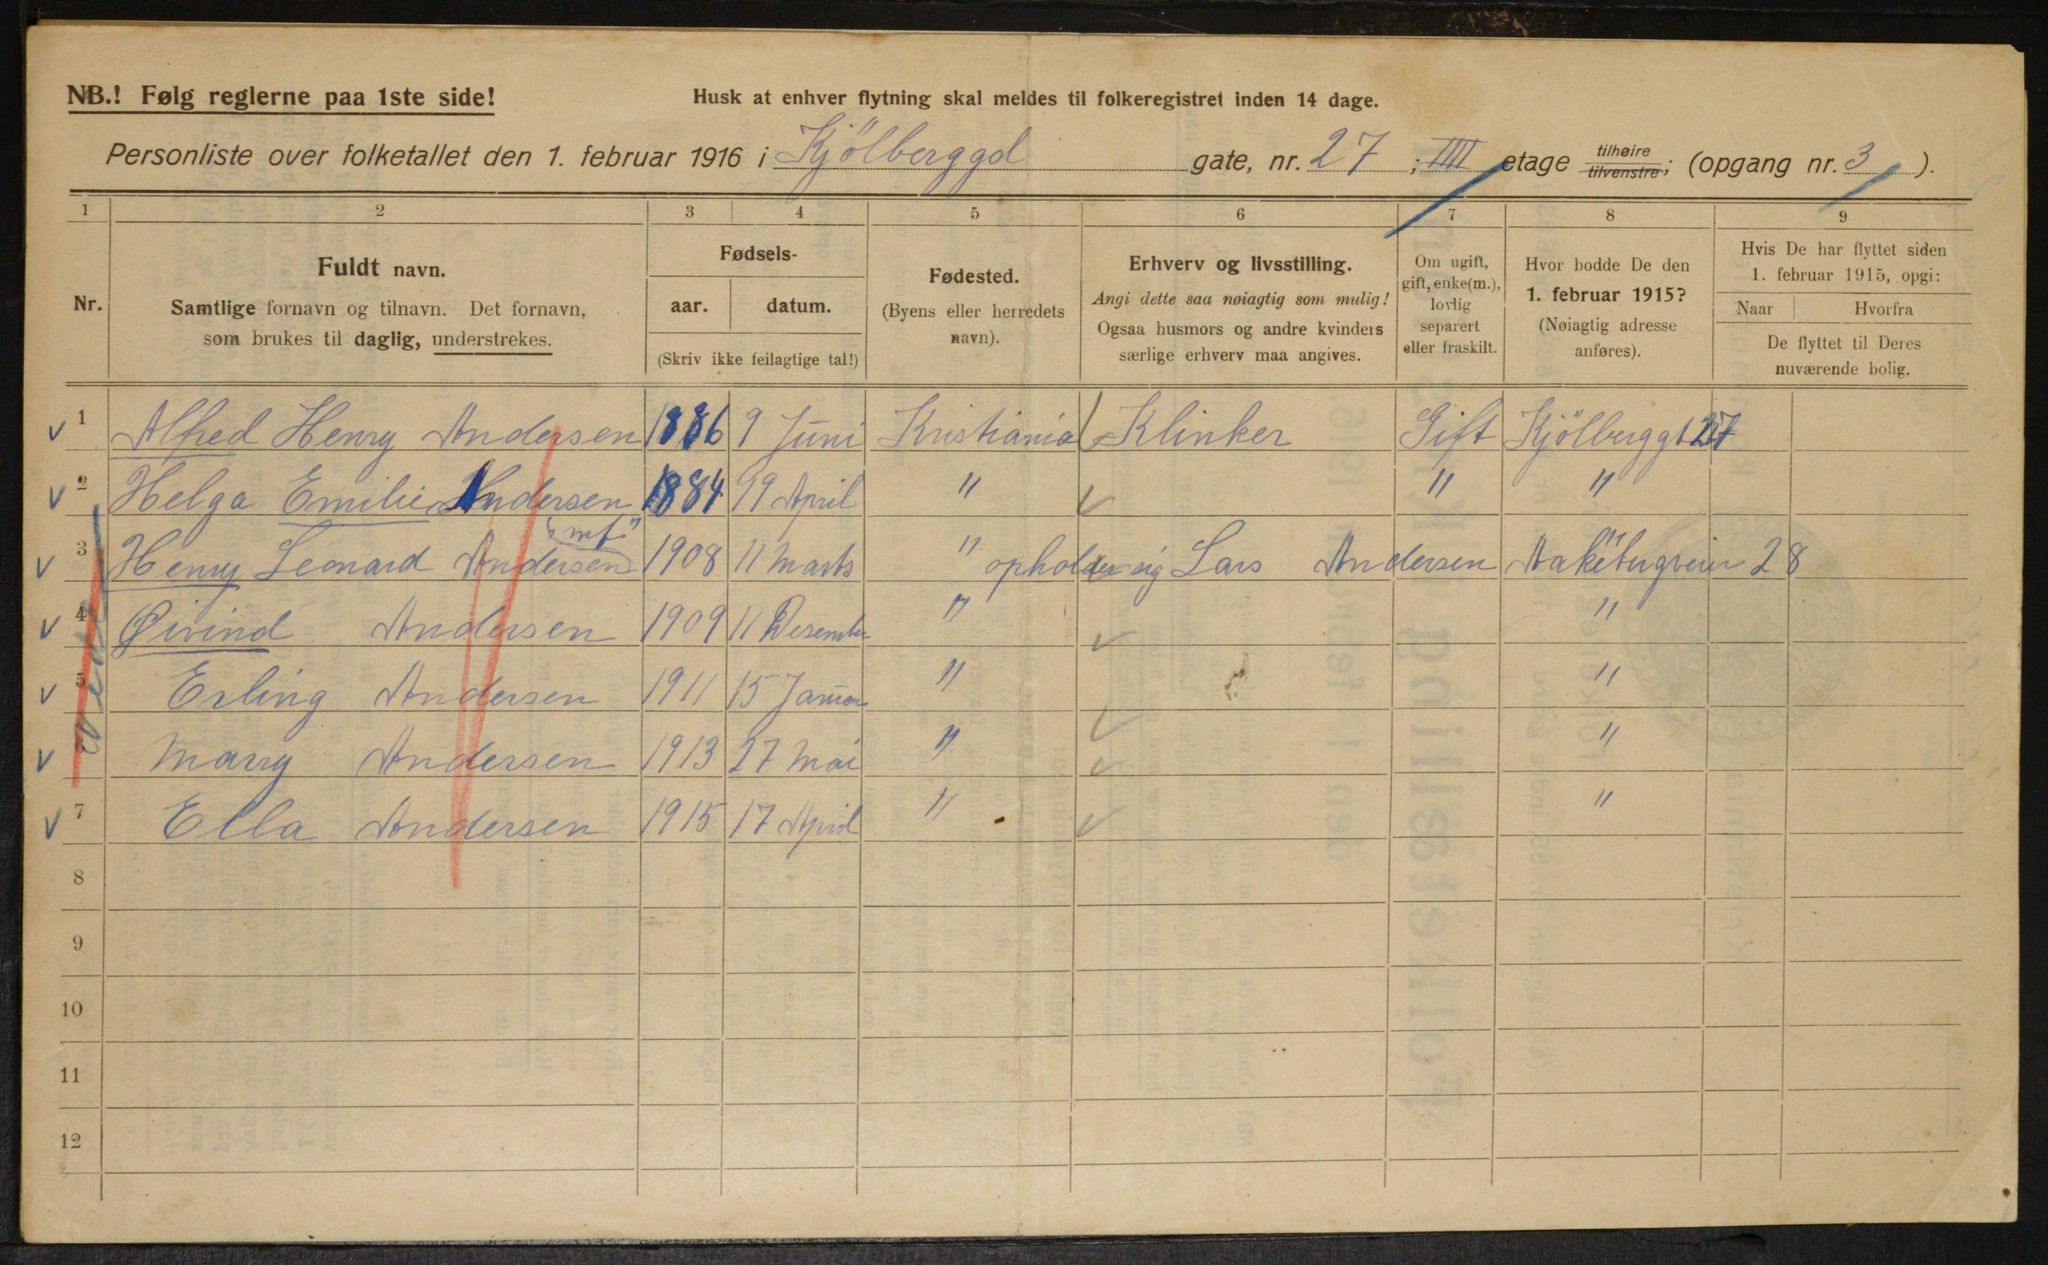 NB.! Følg reglerne paa 1ste side!
Husk at enhver flytning skal meldes til folkeregistret inden 14 dage.
Personliste over folketallet den 1. februar 1916 i Kjölberggd gate, nr. 27 ; IIII etage tilhøire/tilvenstre; (opgang nr. 3 ).
1 2 3 4 5 6 7 8 9
Nr.
Fuldt navn.
Samtlige fornavn og tilnavn. Det fornavn,
som brukes til daglig, understrekes.
Fødsels-
aar. datum.
(Skriv ikke feilagtige tal!)
Fødested.
(Byens eller herredets
navn).
Erhverv og livsstilling.
Angi dette saa nøiagtig som mulig!
Ogsaa husmors og andre kvinders
særlige erhverv maa angives.
Om ugift,
gift, enke(m.),
lovlig
separert
eller fraskilt.
Hvor bodde De den
1. februar 1915?
(Nøiagtig adresse
anføres).
Hvis De har flyttet siden
1. februar 1915, opgi:
Naar Hvorfra
De flyttet til Deres
nuværende bolig.
1 Alfred Henry Andersen 1886 9 Juni Kristiania Klinker Gift Kjölberggt 27
2 Helga Emilie Andersen 1884 19 April " " "
"mf."
3 Henry Leonard Andersen 1908 11 Marts " opholder sig Lars Andersen 28
4 Øivind Andersen 1909 11 Desember " "
5 Erling Andersen 1911 15 Januar " "
Marry Andersen 1913 27 Mai " "
7 Ella Andersen 1915 17 April " "
8
9
10
11
12